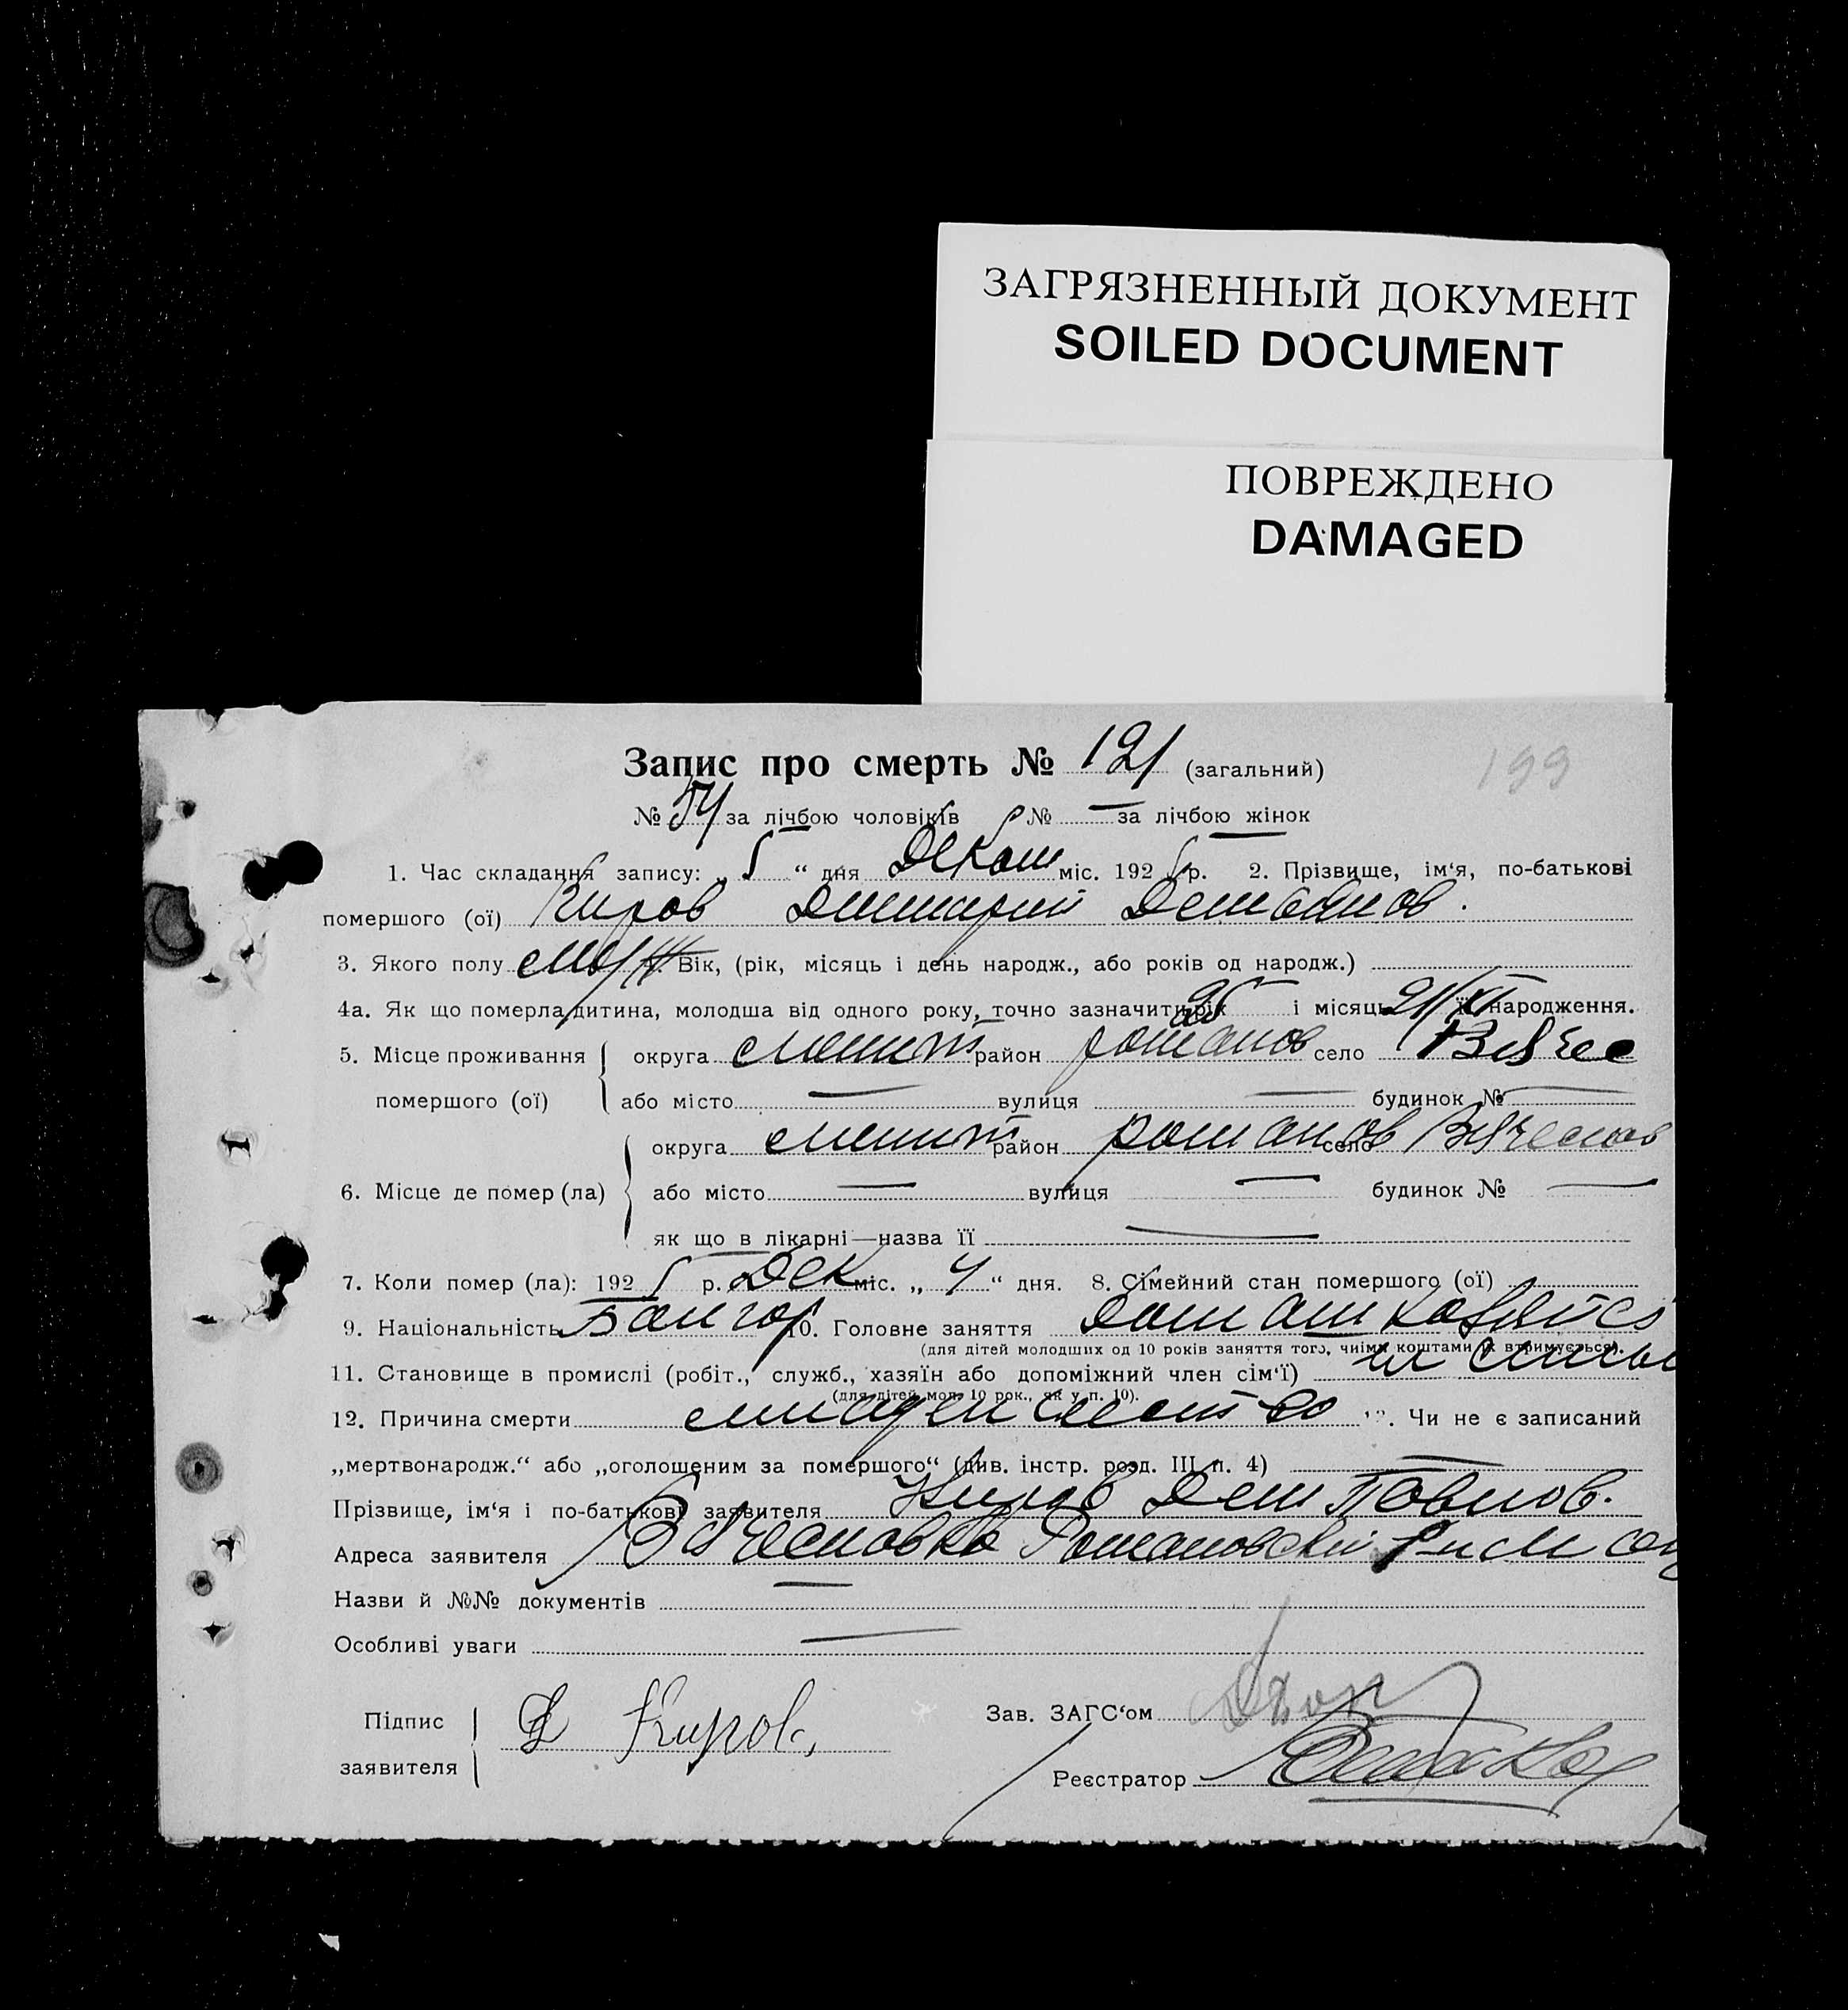 ЗАГРЯЗНЕННЫЙ ДОКУМЕНТ
SOILED DOCUMENT
ПОВРЕЖДЕНО
DAMAGED
199
Запис про смерть № 121 (загальний)
№ 54 за лічбою чоловіків № — за лічбою жінок
1. Час складання запису: „ 5 “ дня Декаш міс. 192 5 р. 2. Прізвище, ім'я, по-батькові
помершого (ої) Киров Димитрий
3. Якого полу муж 4. Вік, (рік, місяць і день народж., або років од народж.)
4а. Як що померла дитина, молодша від одного року, точно зазначити рік 25 і місяць 21/XI її народження.
5. Місце проживання округа мелит район роман село Вяче
помершого (ої) або місто — вулиця — будинок № —
округа мелит район роман село Вячеслав
6. Місце де помер (ла) або місто — вулиця — будинок № —
як що в лікарні—назва її —
7. Коли помер (ла): 192 5 р. Дек міс. „ 4 “ дня. 8. Сімейний стан помершого (ої)
9. Національність Болгор 10. Головне заняття
(для дітей молодших од 10 років заняття того, чиїми коштами їх втримується).
11. Становище в промислі (робіт., служб., хазяїн або допоміжний член сім'ї)
(для дітей мол. 10 рок., як у п. 10).
12. Причина смерти младенчество 13. Чи не є записаний
„мертвонародж.“ або „оголошеним за помершого“ (див. інстр. розд. III п. 4) —
Прізвище, ім'я і по-батькові заявителя Киров Дем Павлов.
Адреса заявителя Вячеславка Романовский
Назви й №№ документів —
Особливі уваги —
Підпис
заявителя Д Киров
Зав. ЗАГС'ом
Реєстратор